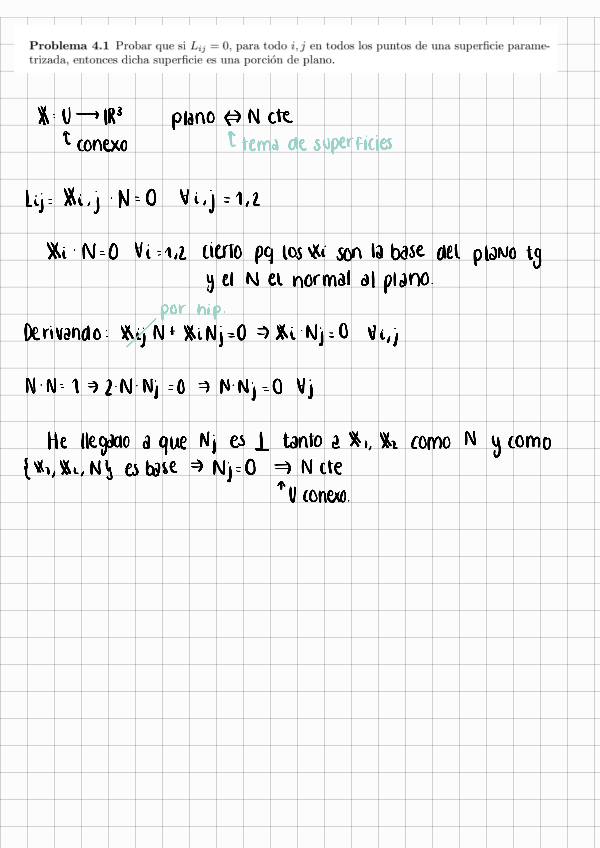 Problema 4.1 Probar que si Lij = 0, para todo i, j en todos los puntos de una superficie parame-
trizada, entonces dicha superficie es una porción de plano.
𝕏: U → ℝ³ plano ⇔ N cte
↑ conexo ↑ tema de superficies
Lij = 𝕏i,j · N = 0 ∀i,j = 1,2
𝕏i · N = 0 ∀i = 1,2 cierto pq los 𝕏i son la base del plano tg
y el N el normal al plano.
por hip.
Derivando: 𝕏ij N + 𝕏i Nj = 0 ⇒ 𝕏i · Nj = 0 ∀i,j
N · N = 1 ⇒ 2 · N · Nj = 0 ⇒ N · Nj = 0 ∀j
He llegado a que Nj es ⊥ tanto a 𝕏₁, 𝕏₂ como N y como
{𝕏₁, 𝕏₂, N} es base ⇒ Nj = 0 ⇒ N cte
↑ U conexo.